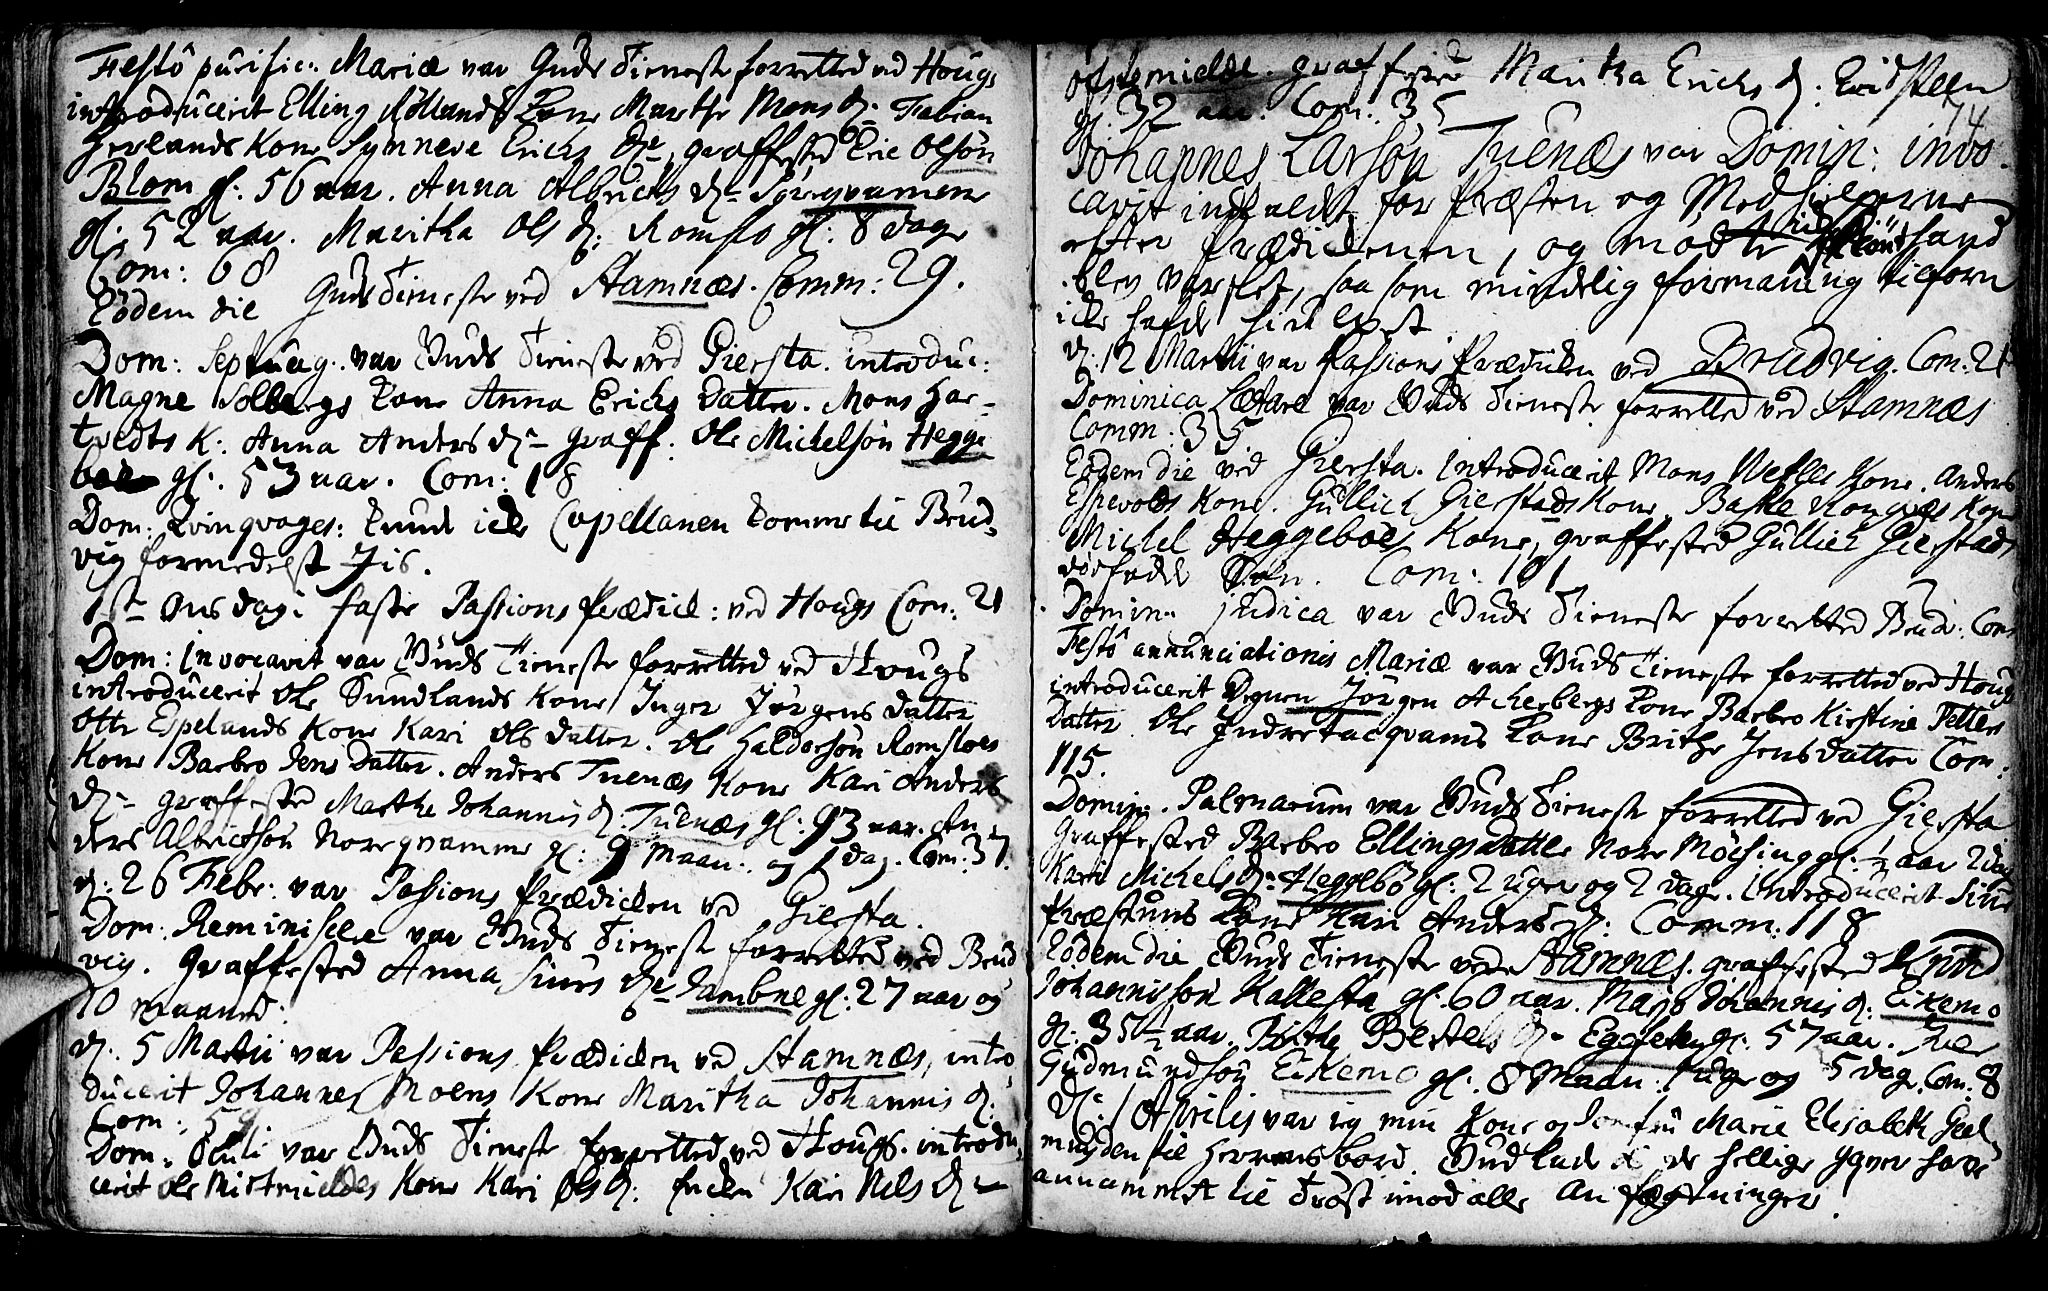 Festo purific: Mariæ var Guds Tieneste forretted ved Hougs
introducerit Elling Röllands Kone Marthe Mons D: Fabian
Herlands Kone Synneve Erichs D:, graffested Eric Olsön
Blom gl: 56 aar. Anna Albrects D: Söreqvamene
gl: 52 aar. Maritha Ols D: Romslo gl: 8 dage
Com: 68
Eodem die Guds Tieneste ved Stamnæs. Comm: 29.
Dom: Septuag. var Guds Tieneste ved Giersta. introduc:
Magne Solbergs Kone Anna Erichs Datter. Mons Har-
tvedts K: Anna Anders D: graff. Ole Michelsön Hegge
böe gl: 53 aar. Com: 18
Dom: Qvinqvages: kunde icke Capellanen komme til Brud-
vig formedelst Jis.
1ste Onsdag i faste Passions Prædick: ved Hougs Com: 21
Dom: Invocavit var Guds Tieneste forretted ved Hougs
introducerit Ole Sundlands Kone Inger Jörgens Datter
Otte Espelands Kone Kari Ols Datter. Ole Haldorsön Romsloes
Kone Barbro Jens Datter. Anders Tuenæs Kone Kari Anders
D: graffested Marthe Johannis D: Tuenæs gl: 93 aar. An-
ders Albrictsön Noreqvamme gl: 9 maan: og 1 dag. Com: 37.
D: 26 Febr: var Passions Prædicken ved Giersta.
Dom: Reminiscere var Guds Tieneste forretted ved Brud
vig. Graffested Anna Siurs D: gl: 27 aar og
10 maaned:
D: 5 Martii var Passions Prædicken ved Stamnæs, intro-
ducerit Johannes Moens Kone Maritha Johannis D:
Com: 59
Dom: Oculi var Guds Tieneste forretted ved Hougs. introdu-
cerit Ole Kone Kari Ols D: Kari Nels D:
graffested Maritha Erichs D: Eidsteen
74
gl: 32 aar. Com: 35
Johannes Larsön Tuenæs var Domin: invo-
cavit indkaldt for Præsten og Medhielperne
efter Prædickenen, og mödte hand
blev varslet, saa som mindelig formaning tilforn
icke hafde hiulpet
D: 12 Martii var Passions Prædicken ved Brudvig. Com: 21
Dominica Lætare var Guds Tieneste forretted ved Stamnæs
Comm: 35
Eodem die ved Giersta. Introducerit Mons Kone. Anders
Espevolds Kone. Gullich Gierstads Kone. Kone
Michel Heggeböes Kone, graffested Gullich Gierstads
dödfödde Sön. Com: 101
Domin: Judica var Guds Tieneste forretted Brud: Com
Festo annunciationis Mariæ var Guds Tieneste forretted ved Hougs
introducerit Degnen Jörgen Acherbergs Kone Barbro Kirstine Petters
Datter. Ole Kone Brithe Jens Datter Com:
115.
Domin: Palmarum var Guds Tieneste forretted ved Giersta
Graffested Barbro Ellings Datter Nore gl: ½ aar 2 dag
Kari Michels D: Heggebö gl: 2 uger og 2 dage. Introducerit Siur
Kone Kari Anders D: Comm. 118
Eodem die Guds Tieneste ved Stamnæs. graffested Knud
Johannisson Kallesta gl: 60 aar. Johannis D: Eikemo
gl: 35½ aar. Brithe Bertels D: gl: 57 aar.
Gudmundsön Eikemo gl: 8 Maan: 1 uge og 5 dage. Com: 8
D: 1 Aprilis var ieg min Kone og Jomfru Marie Elisabeth Geel-
muyden til Herrens bord. Gud lade de hellige
annammet til Tröst imod alle anfegtninger.